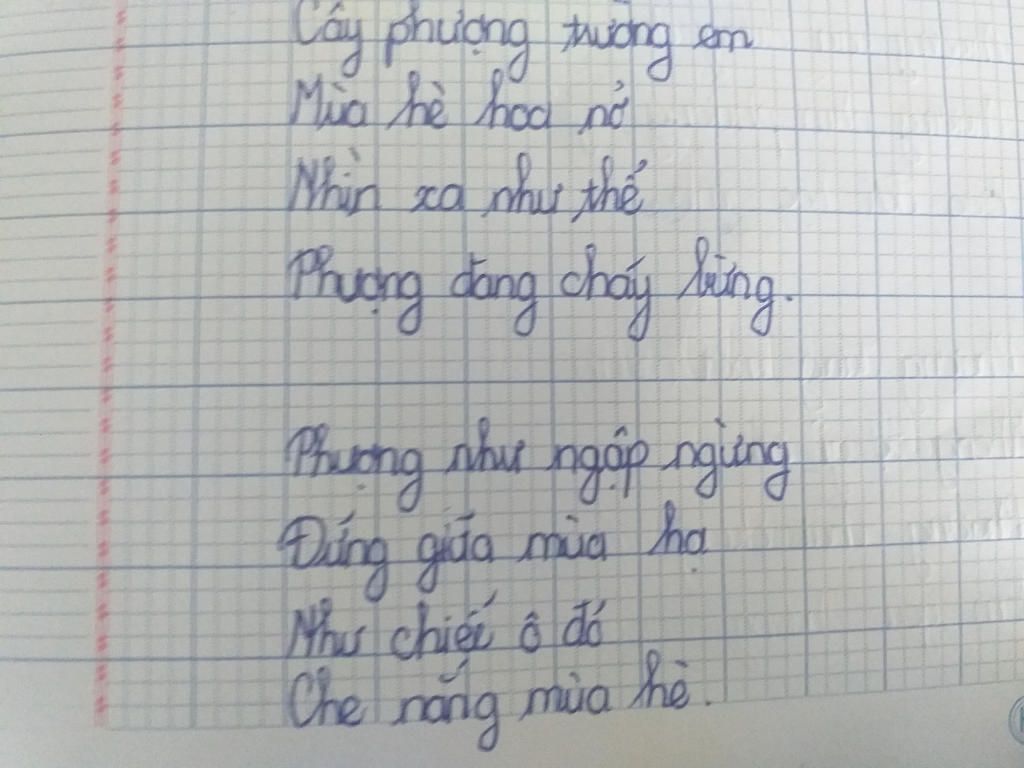 Cây phượng trường em
Mùa hè hoa nở
Nhìn xa như thể
Phượng đang cháy bừng.
Phượng như ngập ngừng
Đứng giữa mùa hạ
Như chiếc ô đỏ
Che nắng mùa hè.